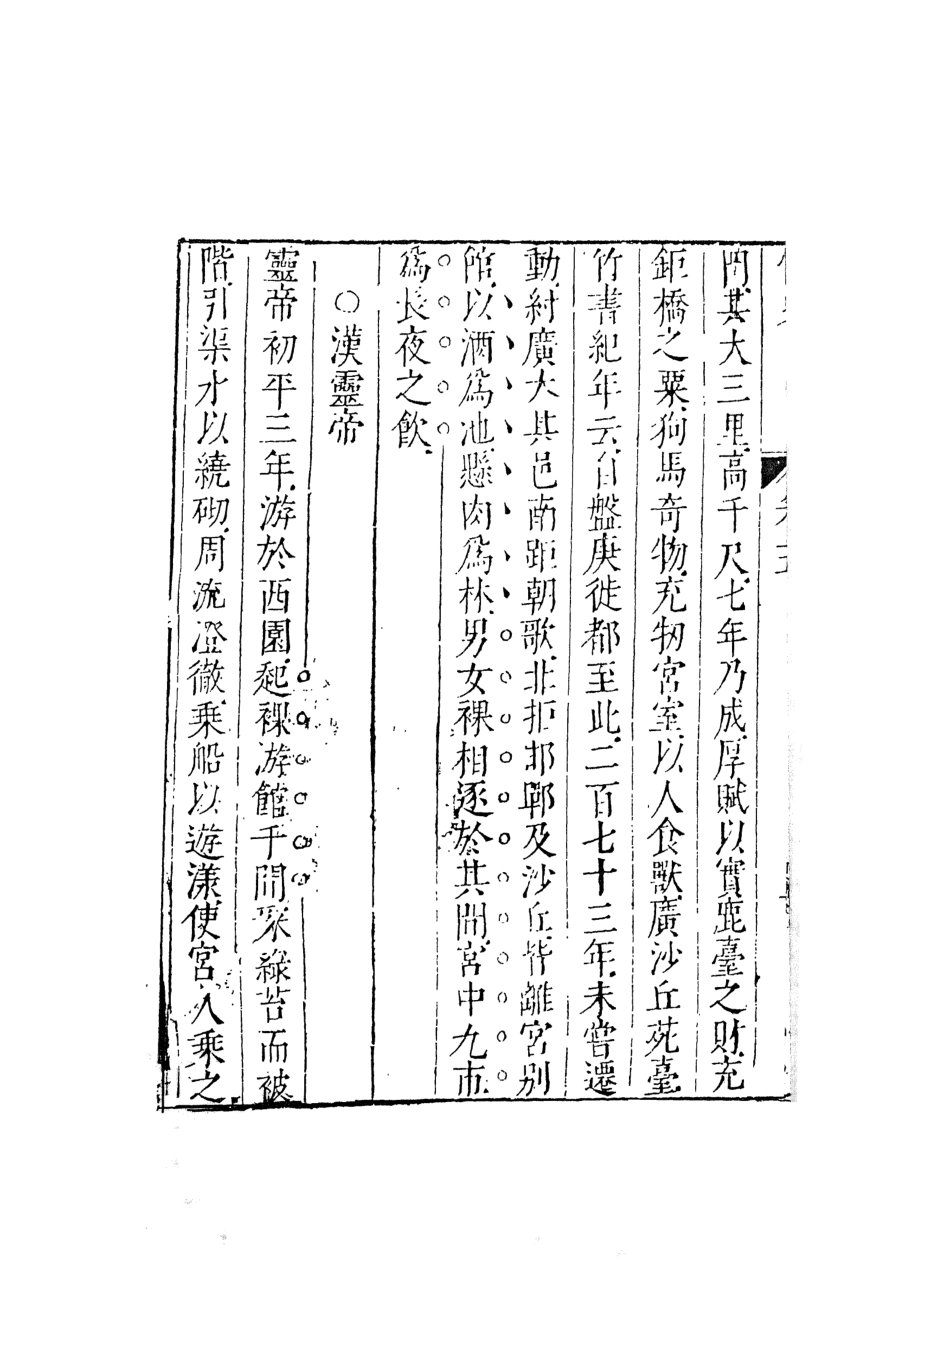 門其大三里高千尺七年乃成厚賦以實鹿臺之財充
鉅橋之粟狗馬奇物充牣宮室以人食獸廣沙丘苑臺
竹書紀年云自盤庚徙都至此二百七十三年未嘗遷
動紂廣大其邑南距朝歌北拒邯鄲及沙丘皆離宮別
館以酒爲池懸肉爲林男女裸相逐於其間宮中九市
爲長夜之飲
○漢靈帝
靈帝初平三年游於西園起裸游館千間采綠苔而被
階引渠水以繞砌周流澄徹乘船以遊漾使宮人乘之